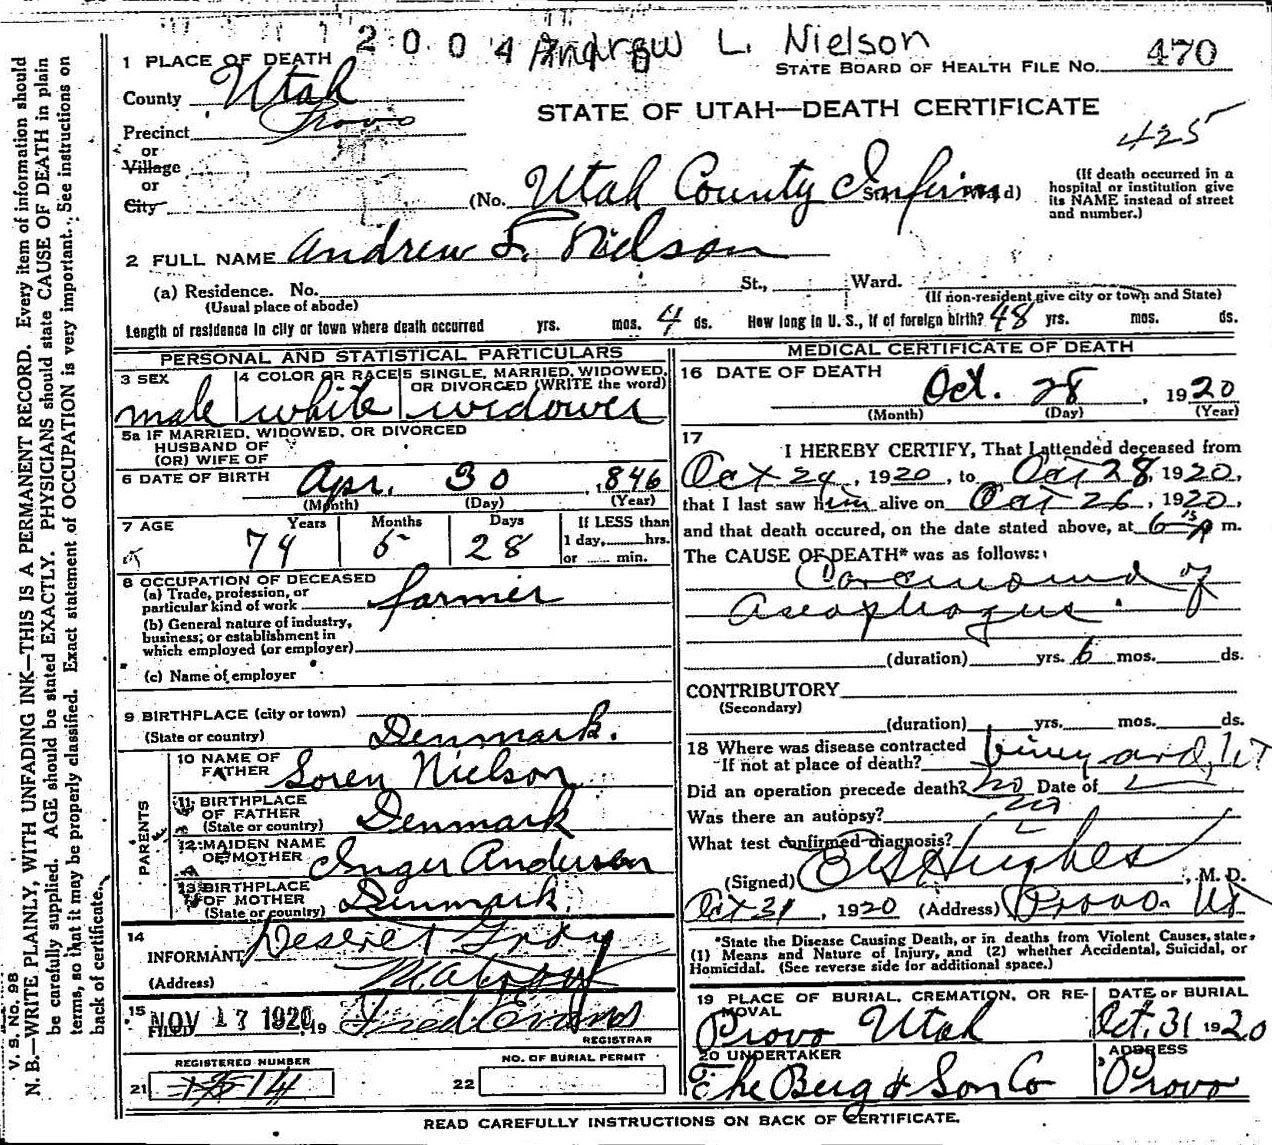 2004 Andrew L. Nielson
1 PLACE OF DEATH
STATE BOARD OF HEALTH FILE NO. 470
County Utah
STATE OF UTAH—DEATH CERTIFICATE
Precinct Provo
425
or
Village
or
City
(No. Utah County Infirm St. Ward)
(If death occurred in a
hospital or institution give
its NAME instead of street
and number.)
2 FULL NAME Andrew L. Nielson
(a) Residence. No. St., Ward.
(Usual place of abode) (If non-resident give city or town and State)
Length of residence in city or town where death occurred yrs. mos. 4 ds. How long in U. S., if of foreign birth? 48 yrs. mos. ds.
PERSONAL AND STATISTICAL PARTICULARS
3 SEX 4 COLOR OR RACE 5 SINGLE, MARRIED, WIDOWED,
OR DIVORCED (WRITE the word)
male white widower
5a IF MARRIED, WIDOWED, OR DIVORCED
HUSBAND OF
(OR) WIFE OF
6 DATE OF BIRTH Apr. 30, 1846
(Month) (Day) (Year)
7 AGE Years Months Days If LESS than
74 5 28 1 day, hrs.
or min.
8 OCCUPATION OF DECEASED
(a) Trade, profession, or
particular kind of work farmer
(b) General nature of industry,
business, or establishment in
which employed (or employer)
(c) Name of employer
9 BIRTHPLACE (city or town)
(State or country) Denmark.
PARENTS
10 NAME OF
FATHER Soren Nielson
11 BIRTHPLACE
OF FATHER
(State or country) Denmark
12 MAIDEN NAME
OF MOTHER Inger Andersen
13 BIRTHPLACE
OF MOTHER
(State or country) Denmark.
14
INFORMANT Deseret Gray
(Address)
15 FILED NOV 17 1920, 19 Fred Evans
REGISTRAR
REGISTERED NUMBER NO. OF BURIAL PERMIT
21 14 22
MEDICAL CERTIFICATE OF DEATH
16 DATE OF DEATH Oct. 28, 1920
(Month) (Day) (Year)
17
I HEREBY CERTIFY, That I attended deceased from
Oct 24, 1920, to Oct 28, 1920,
that I last saw him alive on Oct 26, 1920,
and that death occured, on the date stated above, at 6 15 P m.
The CAUSE OF DEATH* was as follows:
Carcinoma of
Aseophagus.
(duration) yrs. 6 mos. ds.
CONTRIBUTORY
(Secondary)
(duration) yrs. mos. ds.
18 Where was disease contracted
If not at place of death? Vineyard, Ut
Did an operation precede death? no Date of
Was there an autopsy? no
What test confirmed diagnosis?
(Signed) Hughes, M. D.
Oct 31, 1920 (Address) Provo Ut
*State the Disease Causing Death, or in deaths from Violent Causes, state
(1) Means and Nature of Injury, and (2) whether Accidental, Suicidal, or
Homicidal. (See reverse side for additional space.)
19 PLACE OF BURIAL, CREMATION, OR RE- DATE OF BURIAL
MOVAL
Provo Utah Oct. 31 1920
20 UNDERTAKER ADDRESS
The Berg & Son Co Provo
READ CAREFULLY INSTRUCTIONS ON BACK OF CERTIFICATE.
V. S. No. 98
N. B.—WRITE PLAINLY, WITH UNFADING INK—THIS IS A PERMANENT RECORD. Every item of information should
be carefully supplied. AGE should be stated EXACTLY. PHYSICIANS should state CAUSE OF DEATH in plain
terms, so that it may be properly classified. Exact statement of OCCUPATION is very important. See instructions on
back of certificate.